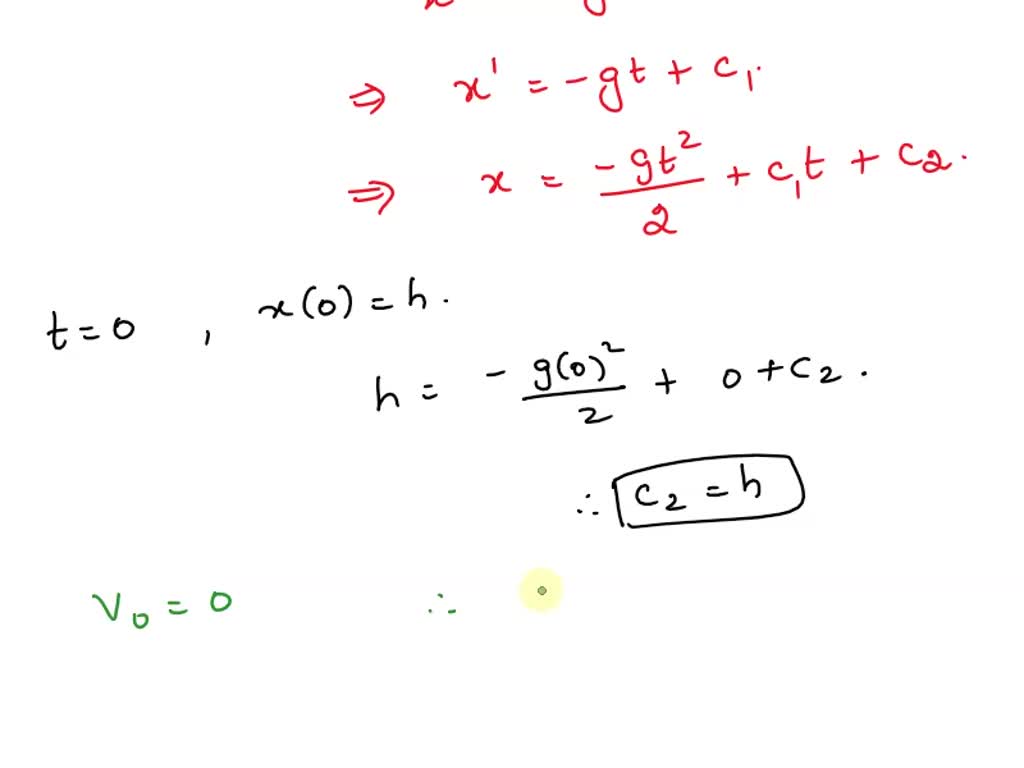 ⇒ x' = -gt + c₁.
⇒ x = -gt²/2 + c₁t + c₂.
t = 0 , x(0) = h.
h = - g(0)²/2 + 0 + c₂.
∴ c₂ = h
V₀ = 0 ∴